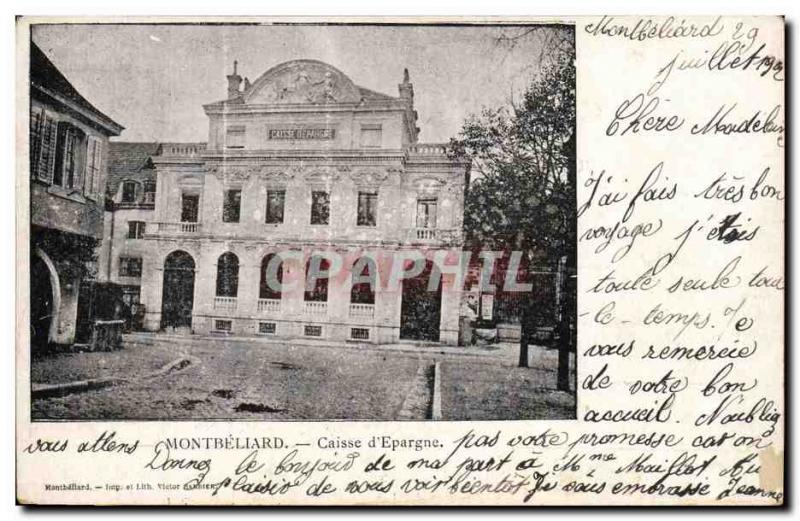 CAISSE D'EPARGNE
CPARPHIL
Montbéliard 29
juillet 190
Chère Madeleine
J'ai fais très bon
voyage j'étais
toute seule tout
le temps. Je
vous remercie
de votre bon
accueil. N'oubliez
pas votre promesse car on
vous attens
Donnez le bonjour de ma part à Mme Maillot Au
plaisir de vous voir bientôt Je vous embrasse Jeanne
MONTBÉLIARD. — Caisse d'Epargne.
Montbéliard. — Imp. et Lith. Victor BARBIER